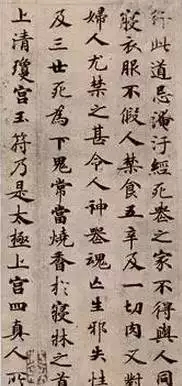 行此道忌淹汙經死喪之家不得與人同
寢衣服不假人禁食五辛及一切肉又對
婦人尤禁之甚令人神喪魂亡生邪失性
及三世死為下鬼常當燒香於寢牀之首
上清瓊宮玉符乃是太極上宮四真人所